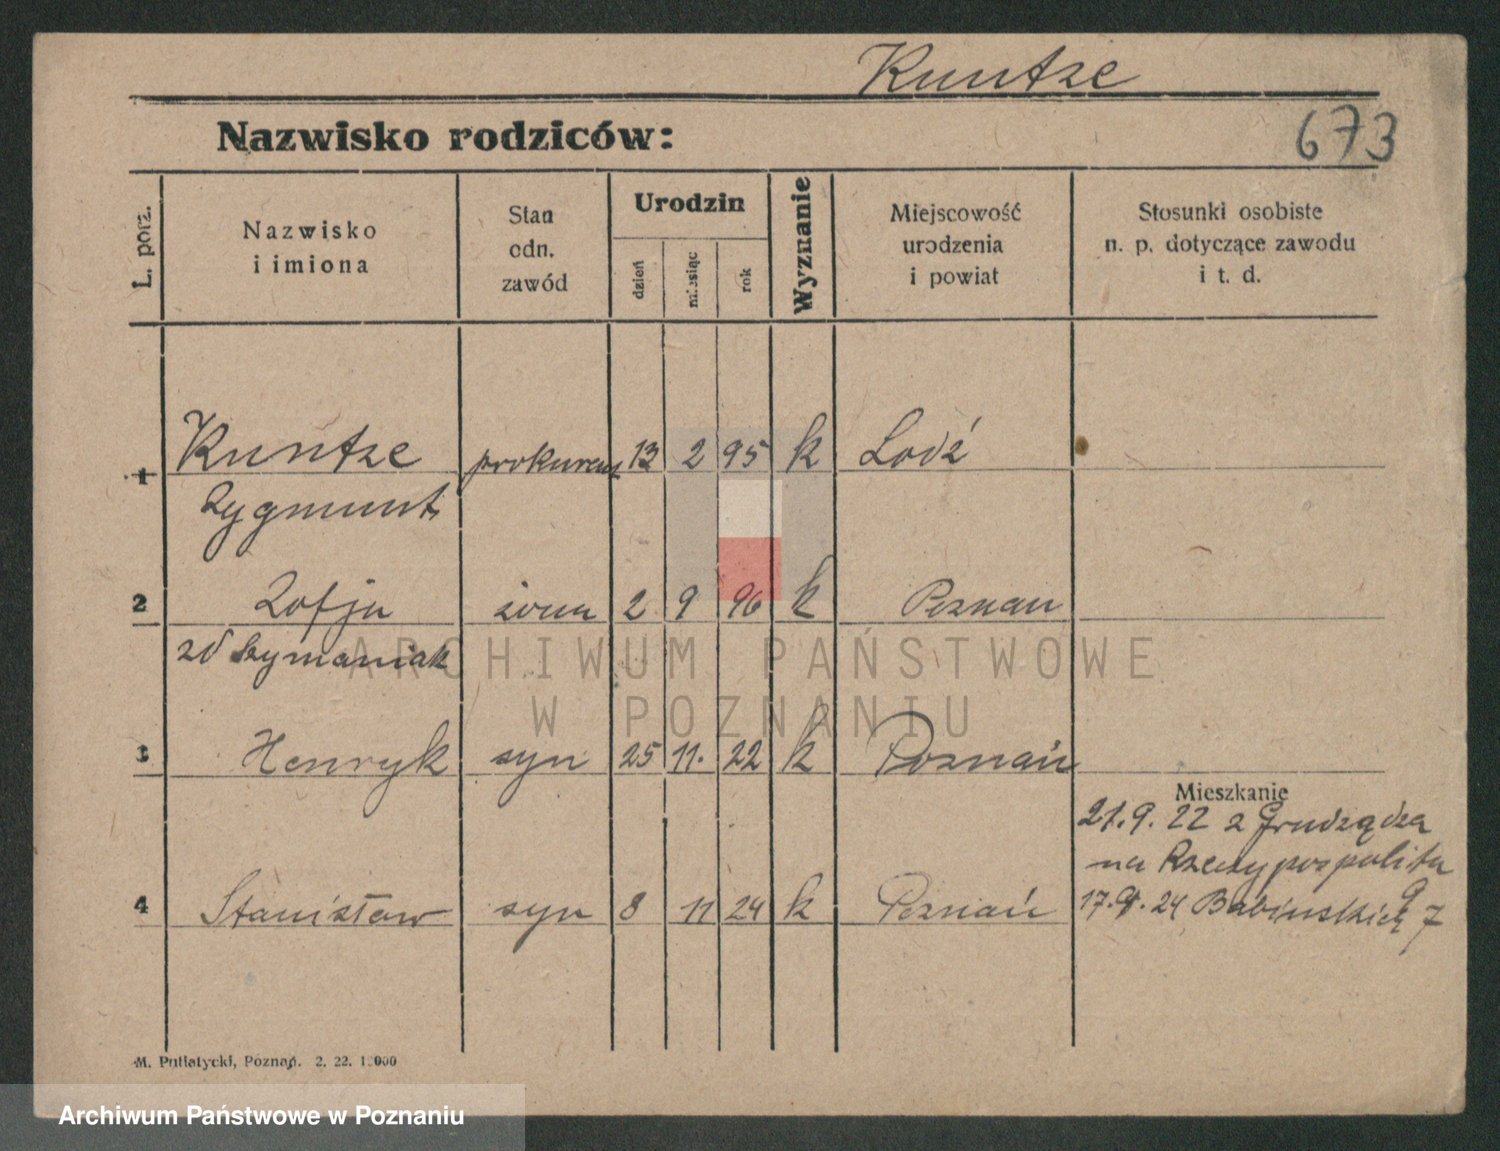 Kuntze
Nazwisko rodziców:
673
L. porz.
Nazwisko
i imiona
Stan
odn.
zawód
Urodzin
dzień
miesiąc
rok
Wyznanie
Miejscowość
urodzenia
i powiat
Stosunki osobiste
n. p. dotyczące zawodu
i t. d.
1 Kuntze 13 2 95 k Lodź
Zygmunt
2 Zofja żona 2 9 96 k Poznan
zd Szymaniak
3 Henryk syn 25 11. 22 k Poznań
Mieszkanie
21.9.22 z Grudządza
na Rzeczypospolita 9
4 Stanisław syn 8 11 24 k Poznań 17.9.24 Babińskieg 7
M. Putiatycki, Poznań. 2. 22.
ARCHIWUM PAŃSTWOWE
W POZNANIU
Archiwum Państwowe w Poznaniu